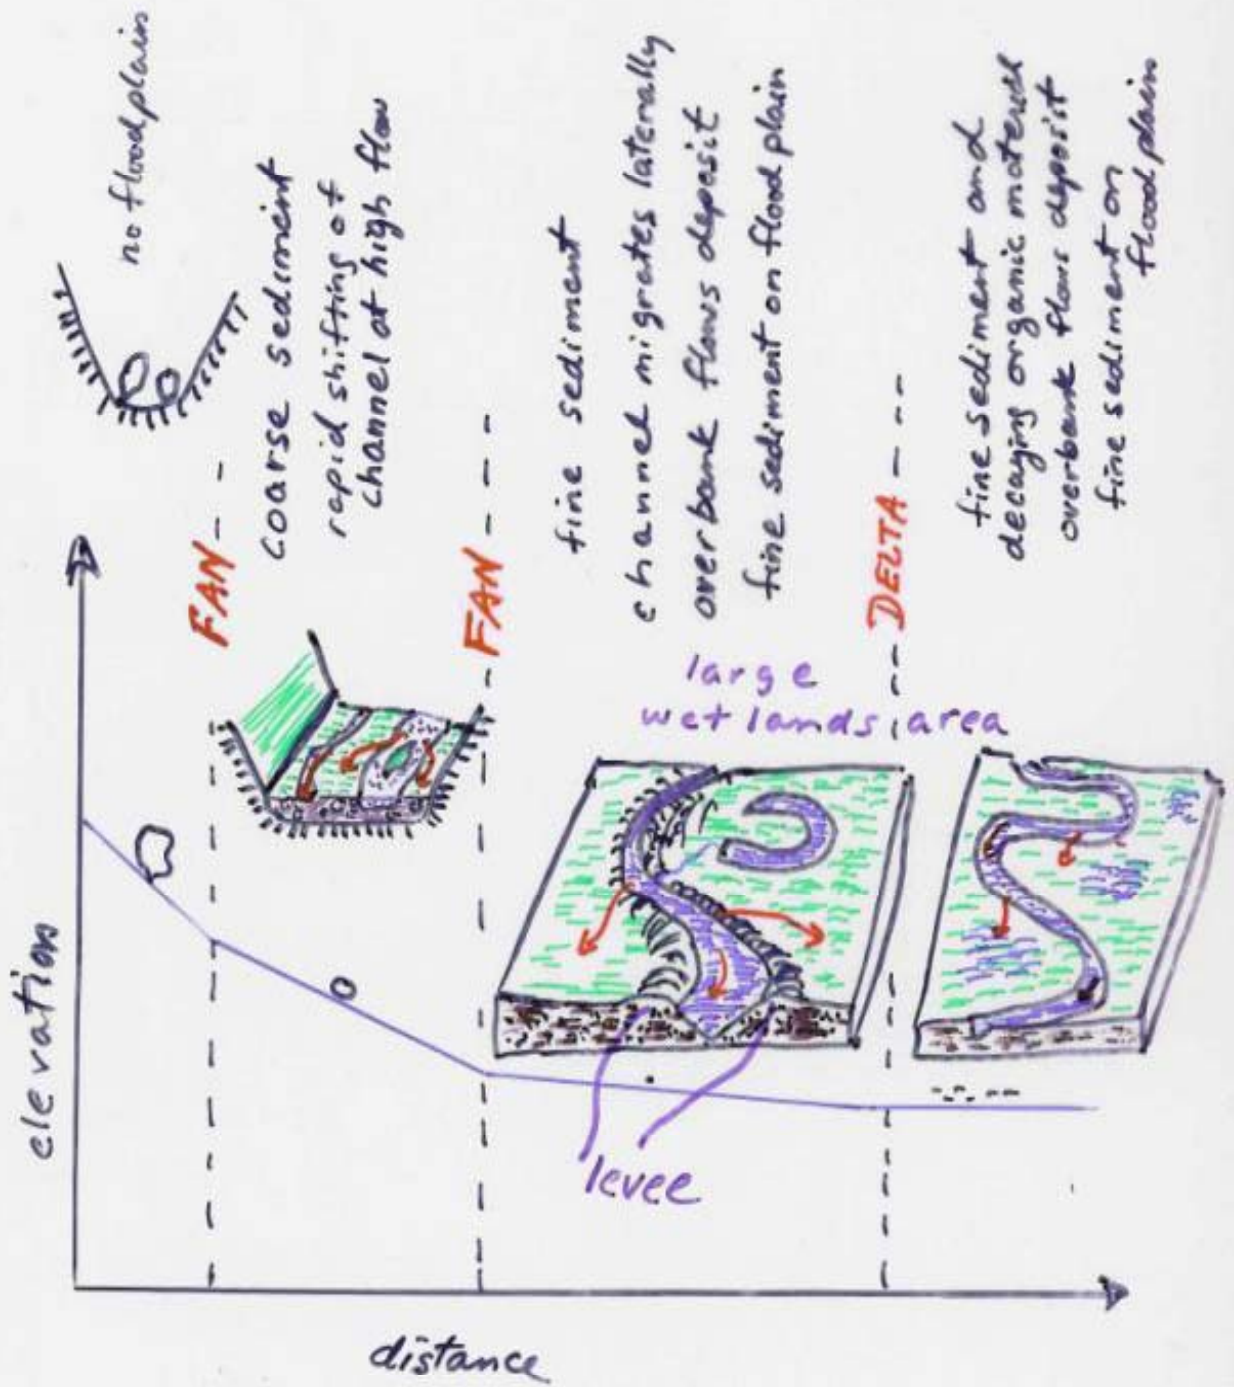 no floodplain
FAN
coarse sediment
rapid shifting of
channel at high flow
FAN
fine sediment
channel migrates laterally
overbank flows deposit
fine sediment on floodplain
DELTA
fine sediment and
decaying organic material
overbank flows deposit
fine sediment on
floodplain
large
wetlands area
levee
elevation
distance